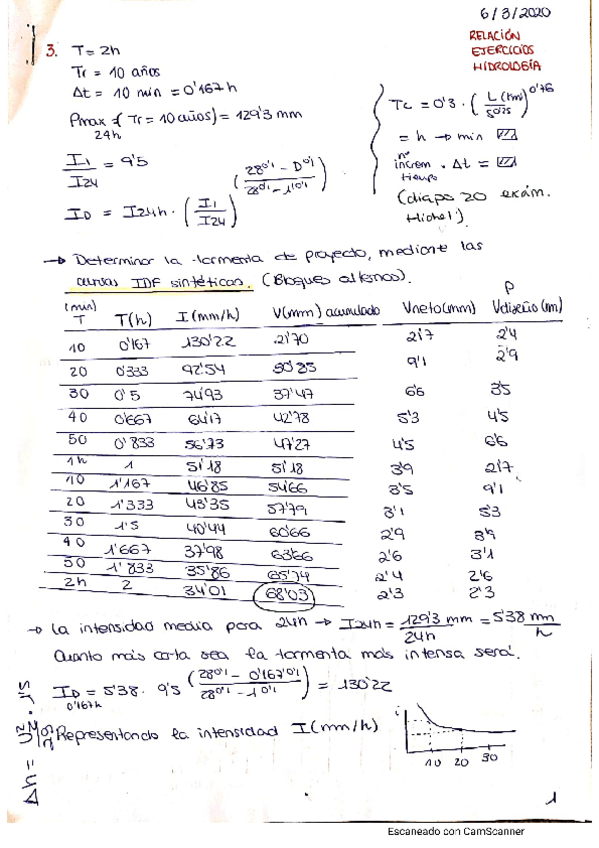 6/3/2020
RELACIÓN
EJERCICIOS
HIDROLOGÍA
3. T = 2h
Tr = 10 años
Δt = 10 min = 0'167 h
Pmax (Tr = 10 años) = 129'3 mm
24h
I1/I24 = 9'5
(28^0'1 - D^0'1 / 28^0'1 - 1^0'1)
ID = I24h · (I1/I24)
Tc = 0'3 · (L(km)/S^0'25)^0'76
= h → min
nº increm. tiempo · Δt =
(diapo 20 exám.
→ Determinar la tormenta de proyecto, mediante las
curvas IDF sintéticas. (Bloques alternos).
(min) T T(h) I(mm/h) V(mm) acumulado Vneto(mm) P Vdiseño(mm)
10 0'167 130'22 21'70 21'7 2'4
20 0'333 92'54 30'85 9'1 2'9
30 0'5 74'93 37'47 6'6 3'5
40 0'667 64'17 42'78 5'3 4'5
50 0'833 56'73 47'27 4'5 6'6
1h 1 51'18 51'18 3'9 21'7
10 1'167 46'85 54'66 3'5 9'1
20 1'333 43'35 57'79 3'1 5'3
30 1'5 40'44 60'66 2'9 3'9
40 1'667 37'98 63'66 2'6 3'1
50 1'833 35'86 65'74 2'4 2'6
2h 2 34'01 68'03 2'3 2'3
→ La intensidad media para 24h → I24h = 129'3 mm / 24h = 5'38 mm/h
Cuanto más corta sea la tormenta más intensa será.
ID = 5'38 · 9'5 (28^0'1 - 0'167^0'1 / 28^0'1 - 1^0'1) = 130'22
0'167h
Representando la intensidad I(mm/h)
i
10 20 30
1
Escaneado con CamScanner